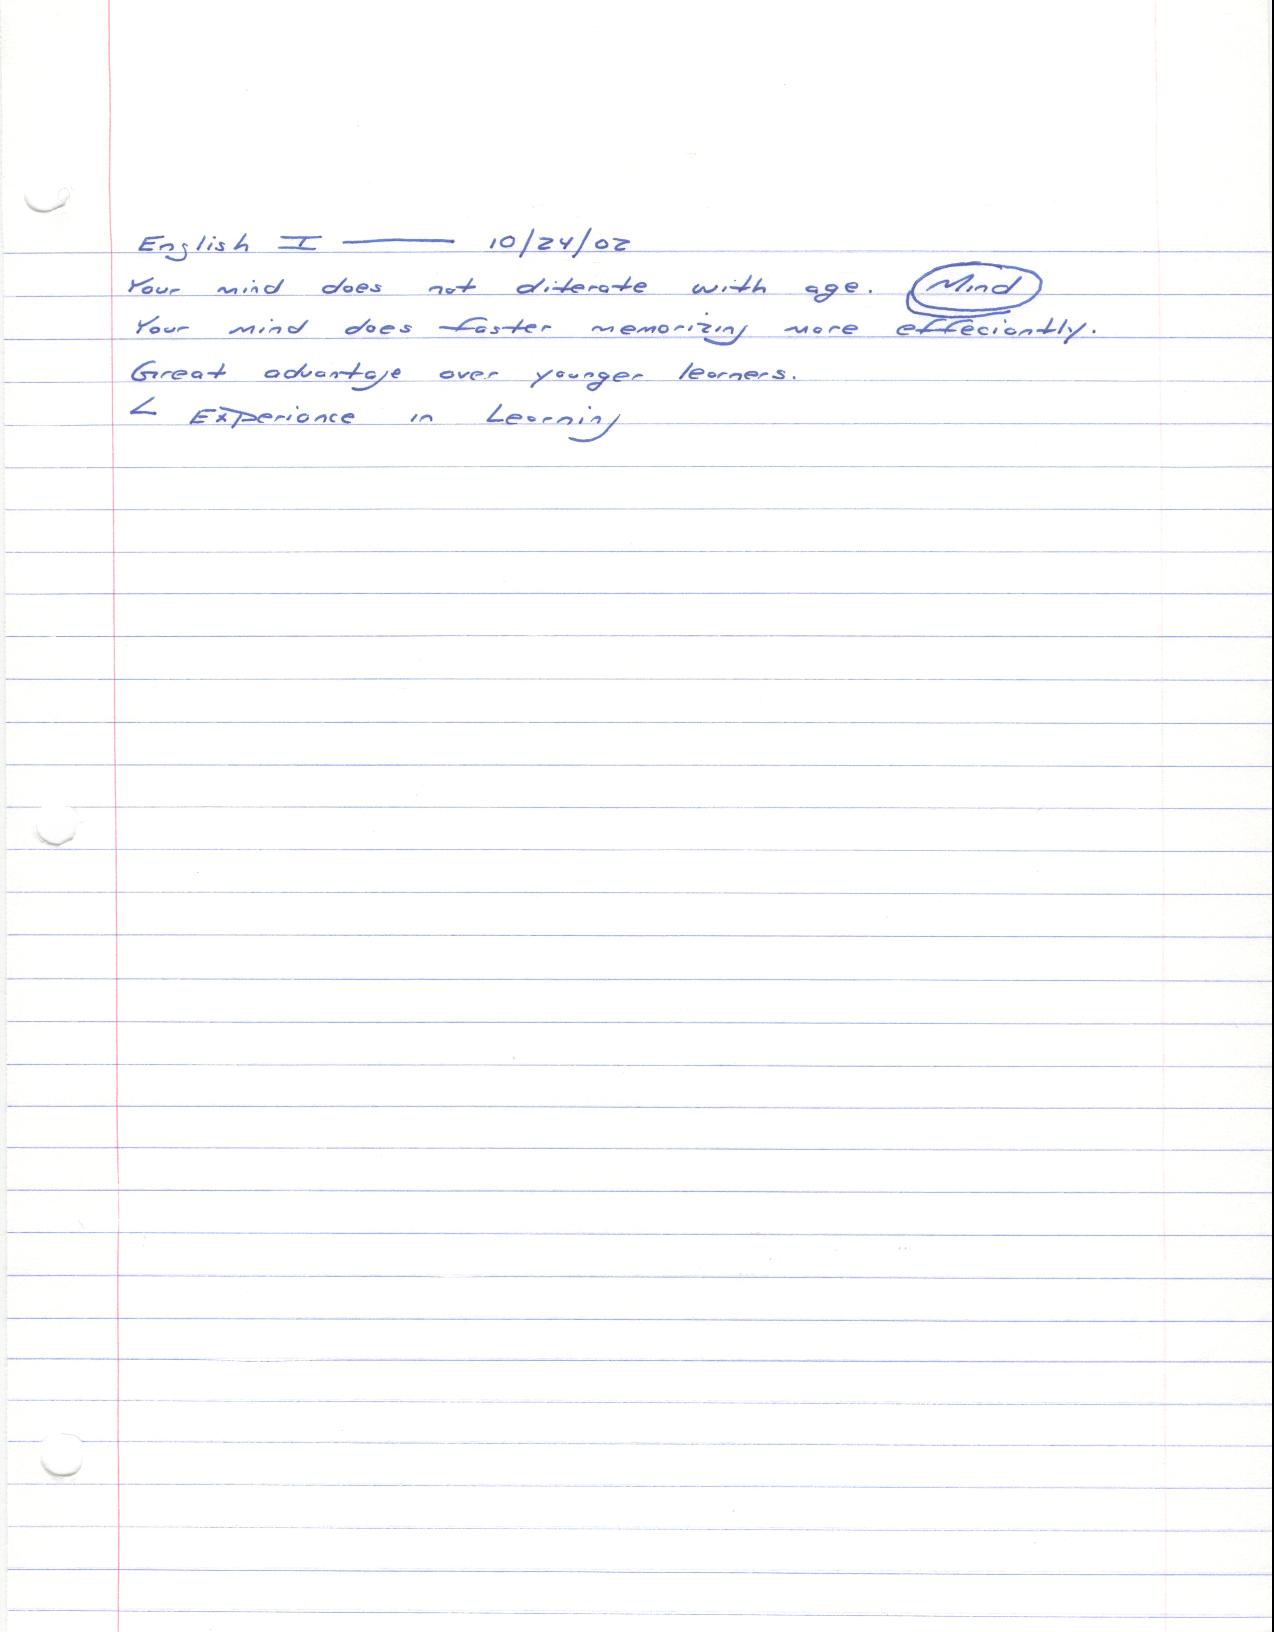 English I — 10/24/02
Your mind does not diterate with age. Mind
Your mind does faster memorizing more effeciantly.
Great advantage over younger learners.
< Experiance in Learning